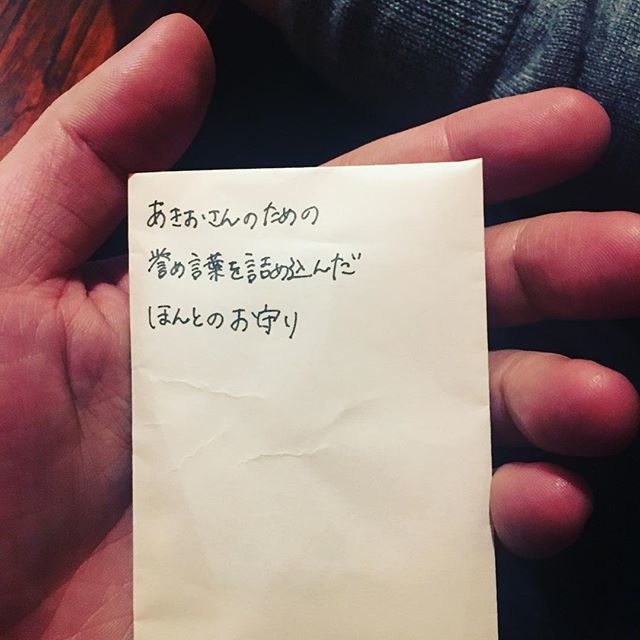 あきおさんのための
誉め言葉を詰め込んだ
ほんとのお守り